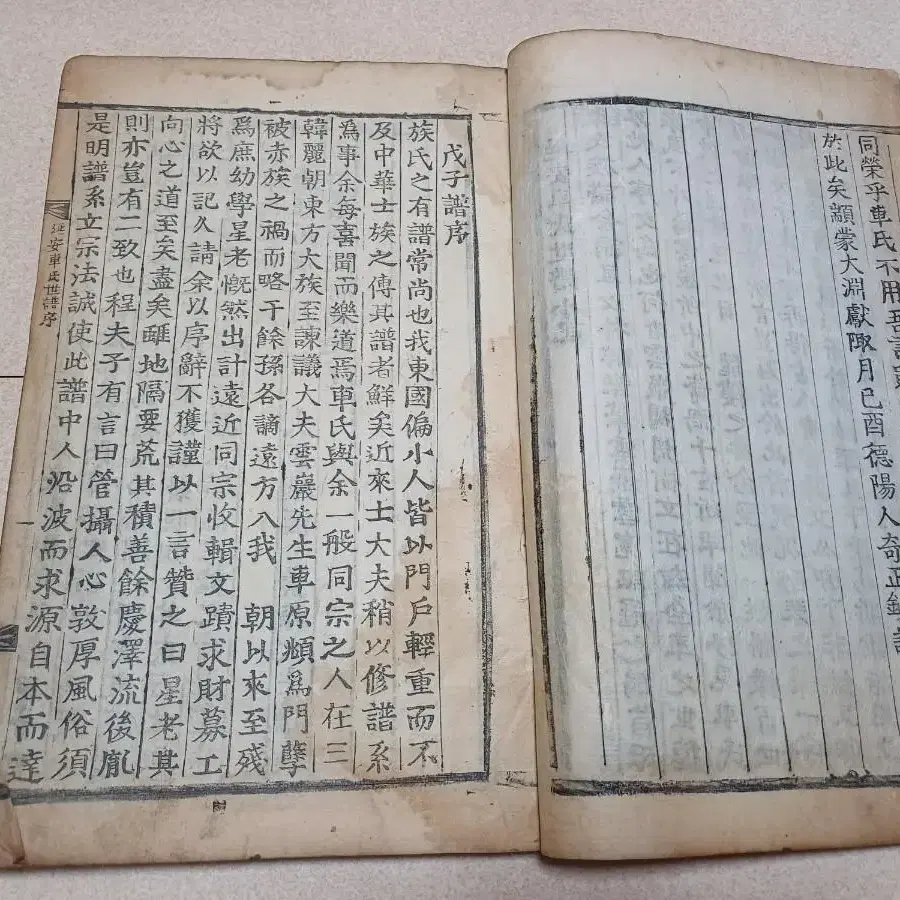 同榮乎車氏不用吾言
於此矣顓蒙大淵獻陬月已酉德陽人奇正
戊子譜序
族氏之有譜常尚也我東國偏小人皆以門戶輕重而不
及中華士族之傳其譜者鮮矣近來士大夫稍以修譜系
爲事余每喜聞而樂道焉車氏與余一般同宗之人在三
韓麗朝東方大族至諫議大夫雲巖先生車原頫爲門孽
被赤族之禍而略干餘孫各謫遠方入我 朝以來至殘
爲庶幼學星老慨然出計遠近同宗收輯文蹟求財募工
將欲以記久請余以序辭不獲謹以一言贊之曰星老其
向心之道至矣盡矣雖地隔要荒其積善餘慶澤流後胤
則亦豈有二致也程夫子有言曰管攝人心敦厚風俗須
是明譜系立宗法誠使此譜中人沿波而求源自本而達
延安車氏世譜序
一